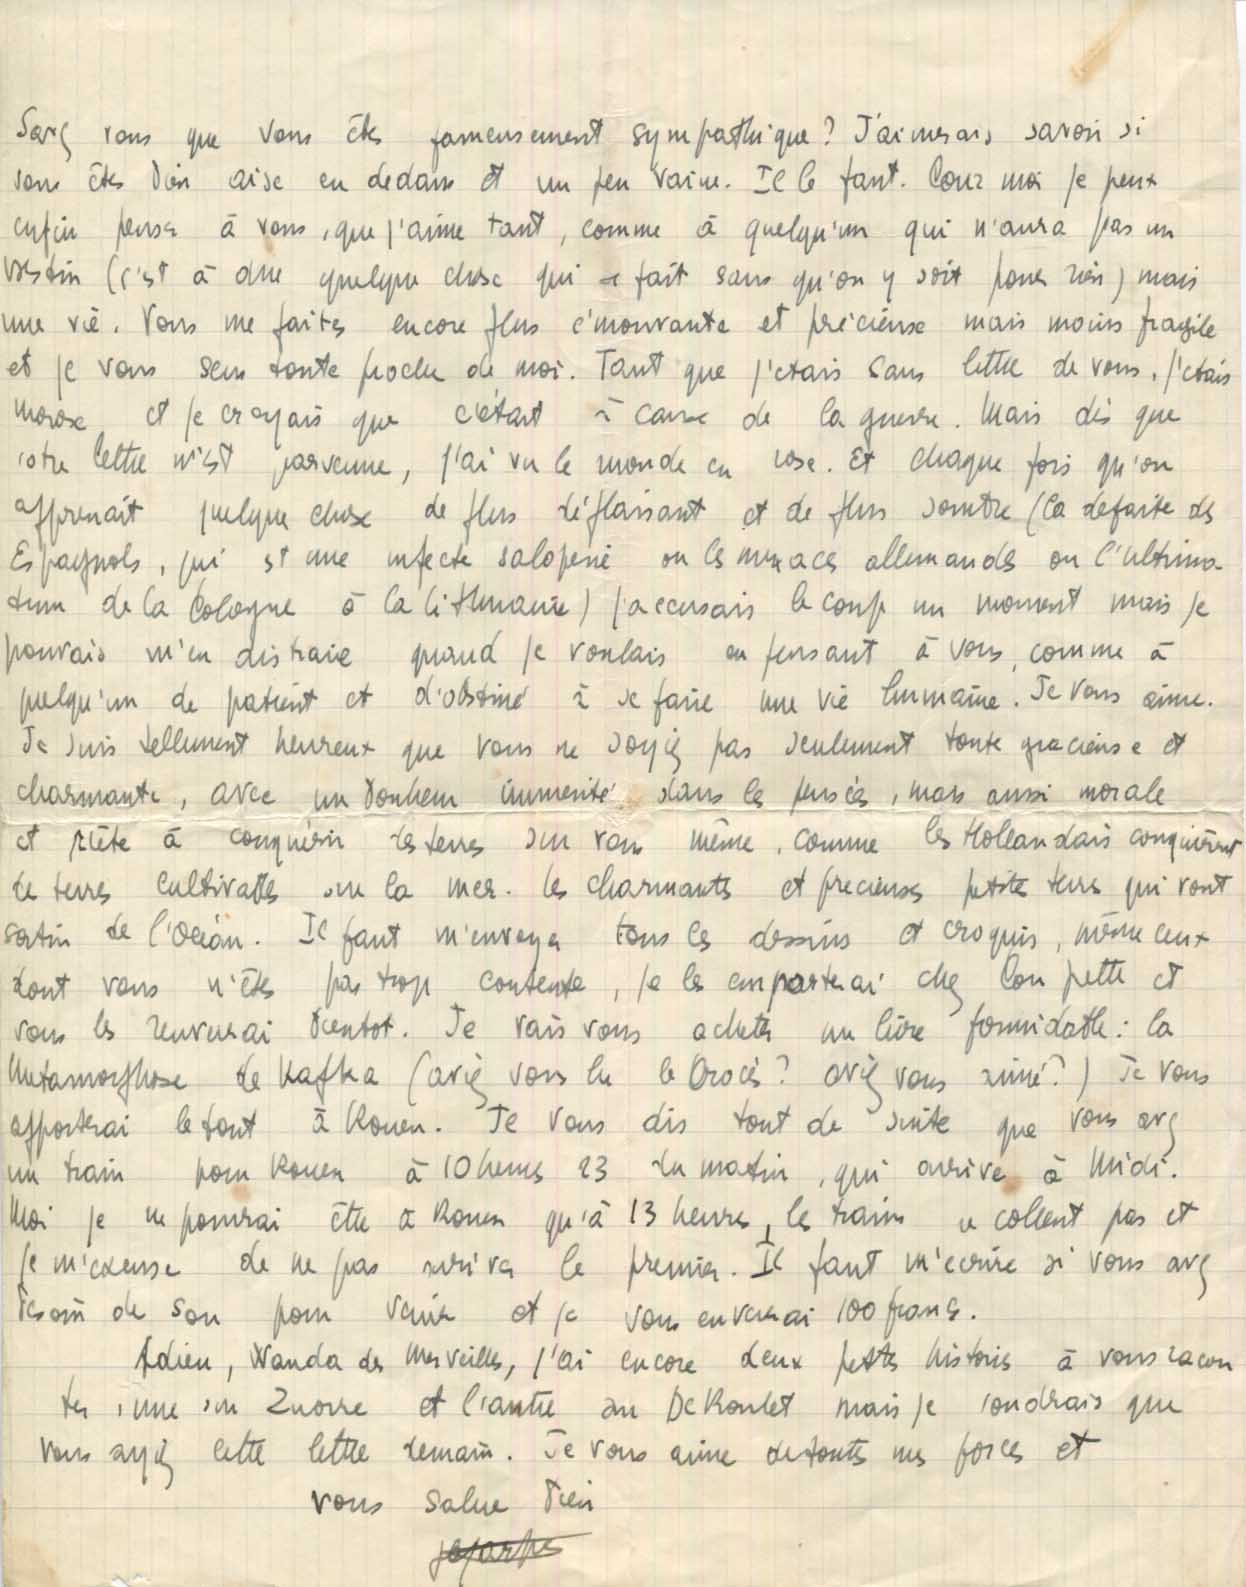 Savez vous que vous êtes fameusement sympathique? J'aimerais savoir si
vous êtes bien aise en dedans et un peu vaine. Il le faut. Pour moi je peux
enfin penser à vous, que j'aime tant, comme à quelqu'un qui n'aura pas un
destin (c'est à dire quelque chose qui se fait sans qu'on y soit pour rien) mais
une vie. Vous me faites encore plus émouvante et précieuse mais moins fragile
et je vous sens toute proche de moi. Tant que j'étais sans lettre de vous, j'étais
morose et je croyais que c'était à cause de la guerre. Mais dès que
votre lettre m'est parvenue, j'ai vu le monde en rose. Et chaque fois qu'on
apprenait quelque chose de plus déplaisant et de plus sombre (la défaite des
Espagnols, qui est une infecte saloperie ou les menaces allemandes ou l'ultima
tum de la Pologne à la Lithuanie) j'accusais le coup un moment mais je
pouvais m'en distraire quand je voulais en pensant à vous, comme à
quelqu'un de patient et d'obstiné à se faire une vie humaine. Je vous aime.
Je suis tellement heureux que vous ne soyiez pas seulement toute gracieuse et
charmante, avec un bonheur immérité dans les pensées, mais aussi morale
et prête à conquérir des terres sur vous même, comme les Hollandais conquièrent
des terres cultivables sur la mer. Les charmantes et précieuses petites terres qui vont
sortir de l'Océan. Il faut m'envoyer tous les dessins et croquis, même ceux
dont vous n'êtes pas trop contente, je les emporterai chez Pou pette et
vous les renverrai bientot. Je vais vous acheter un livre formidable: la
Métamorphose de Kafka (aviez vous lu le Procès? aviez vous aimé?) Je vous
apporterai le tout à Rouen. Je vous dis tout de suite que vous avez
un train pour Rouen à 10 heures 23 du matin, qui arrive à Midi.
Moi je ne pourrai être à Rouen qu'à 13 heures, les trains ne collent pas et
je m'excuse de ne pas arriver le premier. Il faut m'écrire si vous avez
besoin de sou pour venir et je vous enverrai 100 francs.
Adieu, Wanda des Merveilles, j'ai encore deux petites histoires à vous racon
ter, une sur Zuorre et l'autre sur De Roulet mais je voudrais que
vous ayiez cette lettre demain. Je vous aime de toutes mes forces et
vous salue bien